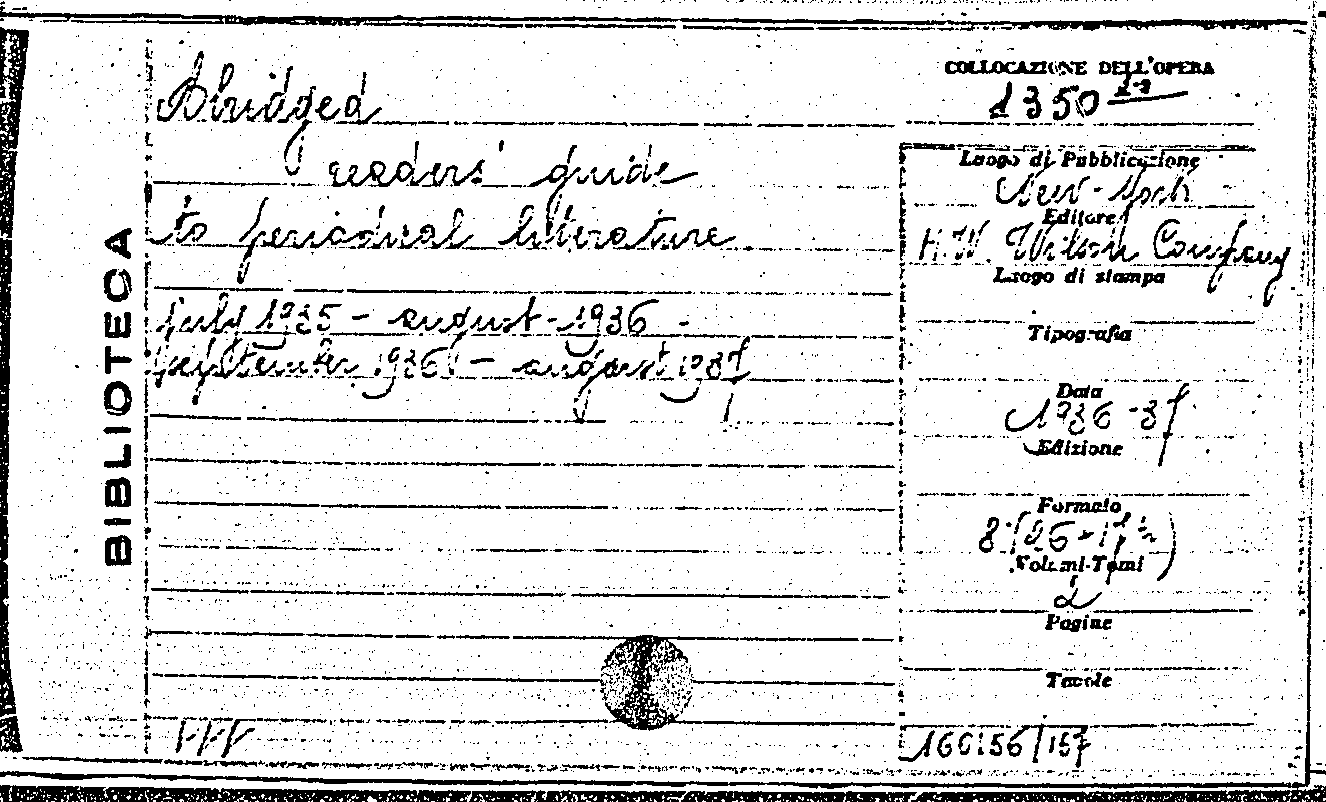 BIBLIOTECA
Abridged
readers' guide
to periodical literature
july 1935 - august - 1936 -
september 1936 - august 1937
COLLOCAZIONE DELL'OPERA
1350 1-2
Luogo di Pubblicazione
New-York
Editore
H.W. Wilson Company
Luogo di stampa
Tipografia
Data
1936-37
Edizione
Formato
8°(26-17
Volumi-Tomi
2
Pagine
Tavole
160156/157